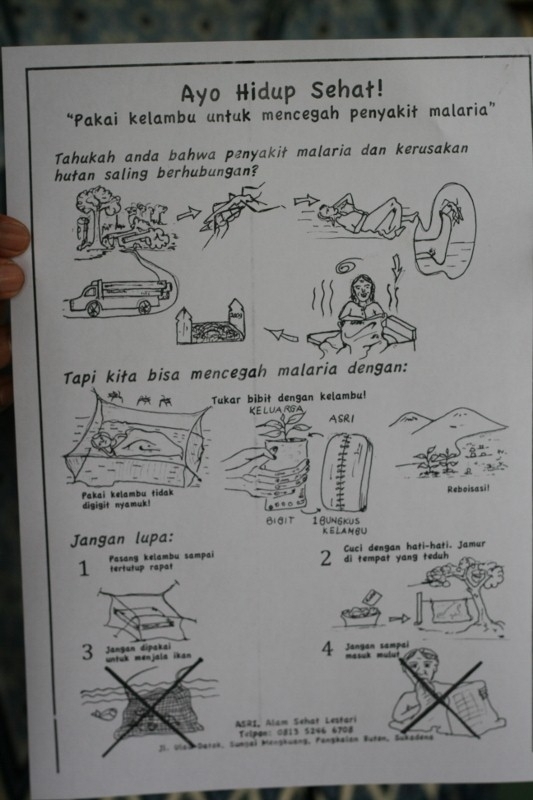 Ayo Hidup Sehat!
"Pakai kelambu untuk mencegah penyakit malaria"
Tahukah anda bahwa penyakit malaria dan kerusakan
hutan saling berhubungan?
Tapi kita bisa mencegah malaria dengan:
Tukar bibit dengan kelambu!
KELUARGA
ASRI
Pakai kelambu tidak
digigit nyamuk!
BIBIT
1 BUNGKUS
KELAMBU
Reboisasi!
Jangan lupa:
1 Pasang kelambu sampai
tertutup rapat
2 Cuci dengan hati-hati. Jamur
di tempat yang teduh
3 Jangan dipakai
untuk menjala ikan
4 Jangan sampai
masuk mulut
ASRI, Alam Sehat Lestari
Telpon: 0813 5246 6708
Jl. Sungai Mengkuang, Pangkalan Buton, Sukadana